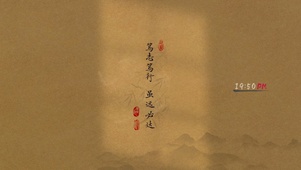 笃志笃行 虽远必达
19:50 PM